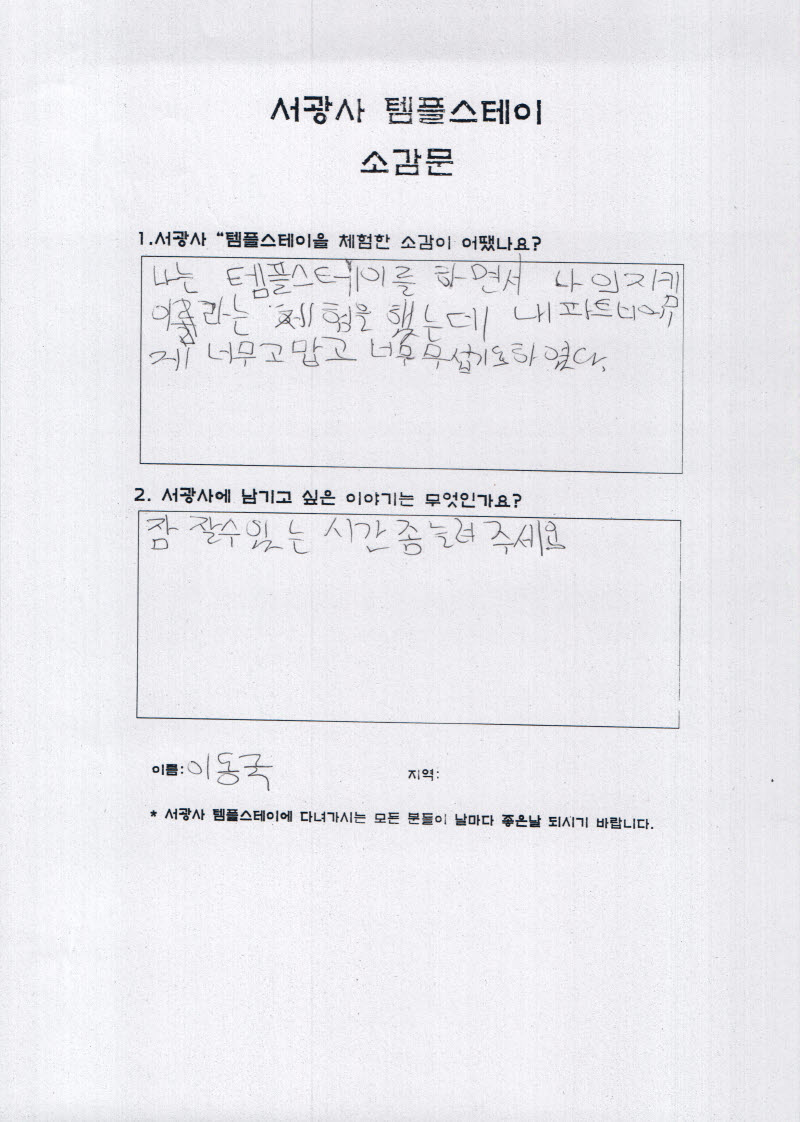 서광사 템플스테이
소감문
1.서광사 “템플스테이을 체험한 소감이 어땠나요?
나는 템플스테이를 하면서 나의지키
이름라는 체험을 했는데 내 파트너에
게 너무고맙고 너무무섭기도하였다.
2. 서광사에 남기고 싶은 이야기는 무엇인가요?
잠 잘수있는 시간좀늘려주세요
이름:이동국
지역:
* 서광사 템플스테이에 다녀가시는 모든 분들이 날마다 좋은날 되시기 바랍니다.